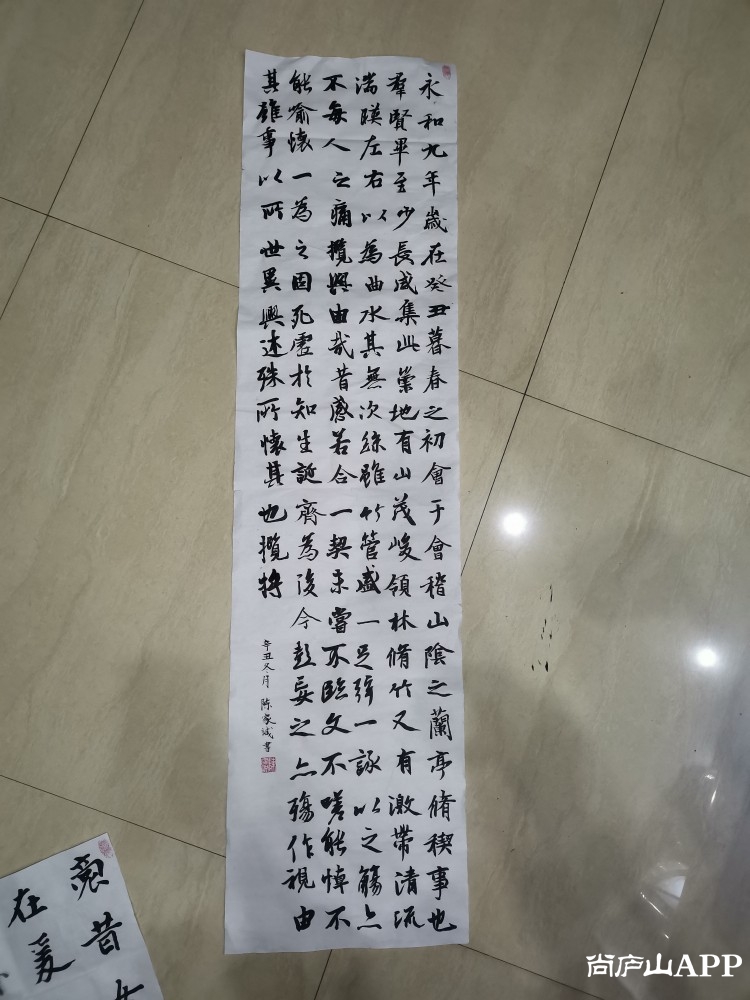 永和九年歲在癸丑暮春之初會于會稽山陰之蘭亭脩稧事也
羣賢畢至少長咸集此崇地有山茂峻領林脩竹又有激帶清流
湍暎左右以為曲水其無次絲雖竹管盛一足一詠以之觴亦
不每人之痛攬興由哉昔感若合一契未嘗不臨文不嗟能悼不
能喻懷一為之固死虛於知生誕齊為後今彭妄之亦殤作視由
其雖事以所世異興述殊所懷其也攬將
辛丑月 陳家書
昔
在
尚庐山APP